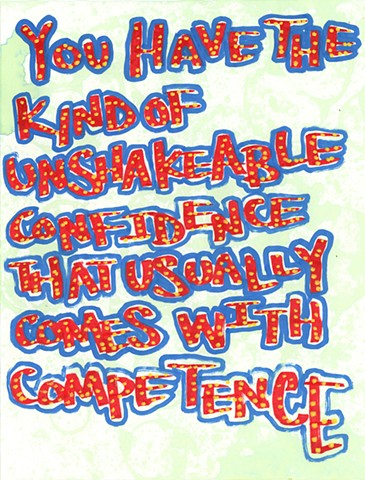 YOU HAVE THE
KIND OF
UNSHAKEABLE
CONFIDENCE
THAT USUALLY
COMES WITH
COMPETENCE